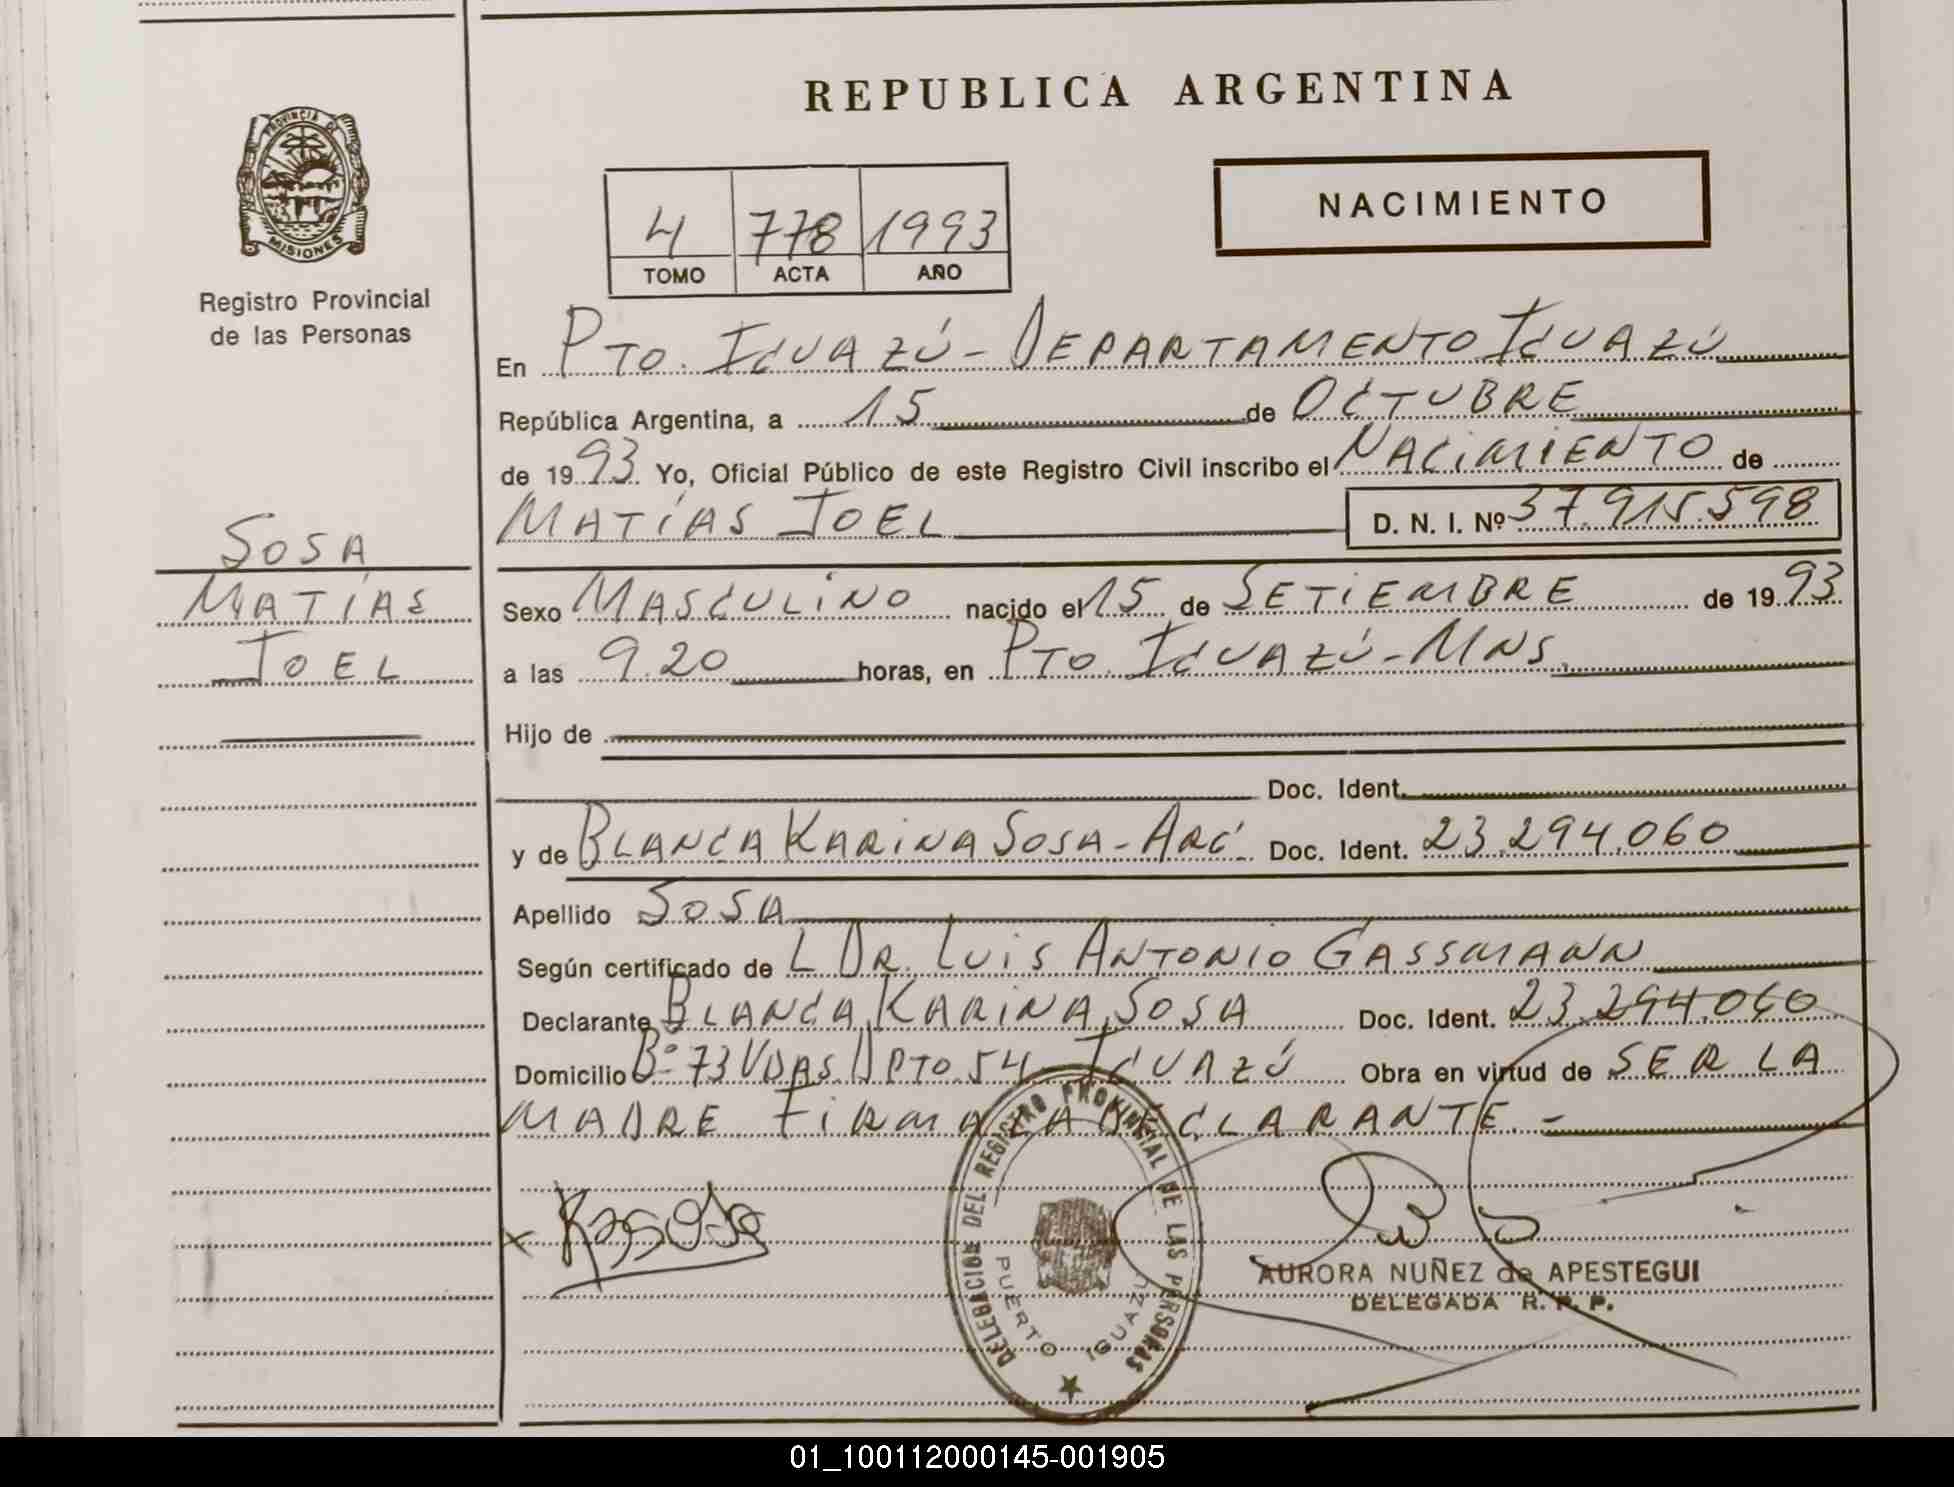 REPUBLICA ARGENTINA
PROVINCIA DE
MISIONES
Registro Provincial
de las Personas
4 778 1993
TOMO ACTA AÑO
NACIMIENTO
En PTO. IGUAZÚ - DEPARTAMENTO IGUAZÚ
República Argentina, a 15 de OCTUBRE
de 1993 Yo, Oficial Público de este Registro Civil inscribo el NACIMIENTO de
MATÍAS JOEL D. N. I. Nº 37.915.598
SOSA
MATÍAS
JOEL
Sexo MASCULINO nacido el 15 de SETIEMBRE de 1993
a las 9.20 horas, en PTO. IGUAZÚ - MNS.
Hijo de
Doc. Ident.
y de BLANCA KARINA SOSA - ARG. Doc. Ident. 23.294.060
Apellido SOSA
Según certificado de L DR. LUIS ANTONIO GASSMANN
Declarante BLANCA KARINA SOSA Doc. Ident. 23.294.060
Domicilio Bº 73 VDAS. DPTO 54 IGUAZÚ Obra en virtud de SER LA
MADRE FIRMA LA DECLARANTE. -
DELEGACION DEL REGISTRO PROVINCIAL DE LAS PERSONAS
PUERTO IGUAZU
AURORA NUÑEZ de APESTEGUI
DELEGADA R. P. P.
01_100112000145-001905